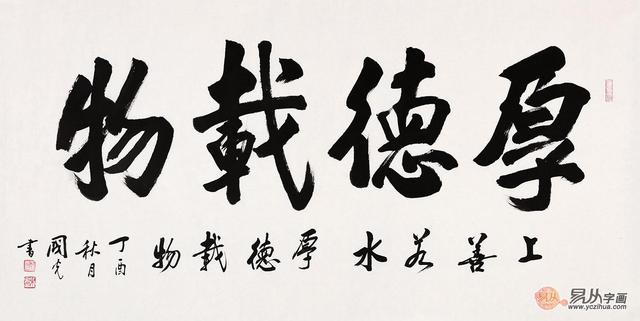 厚德載物
上善若水 厚德載物
丁酉
秋月
國光
書
易从 易从字画
www.yczihua.com